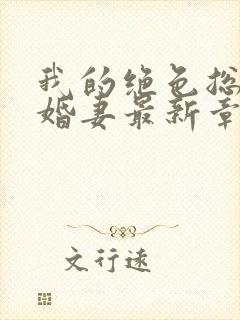 我的绝色总
婚妻最新章
文行速